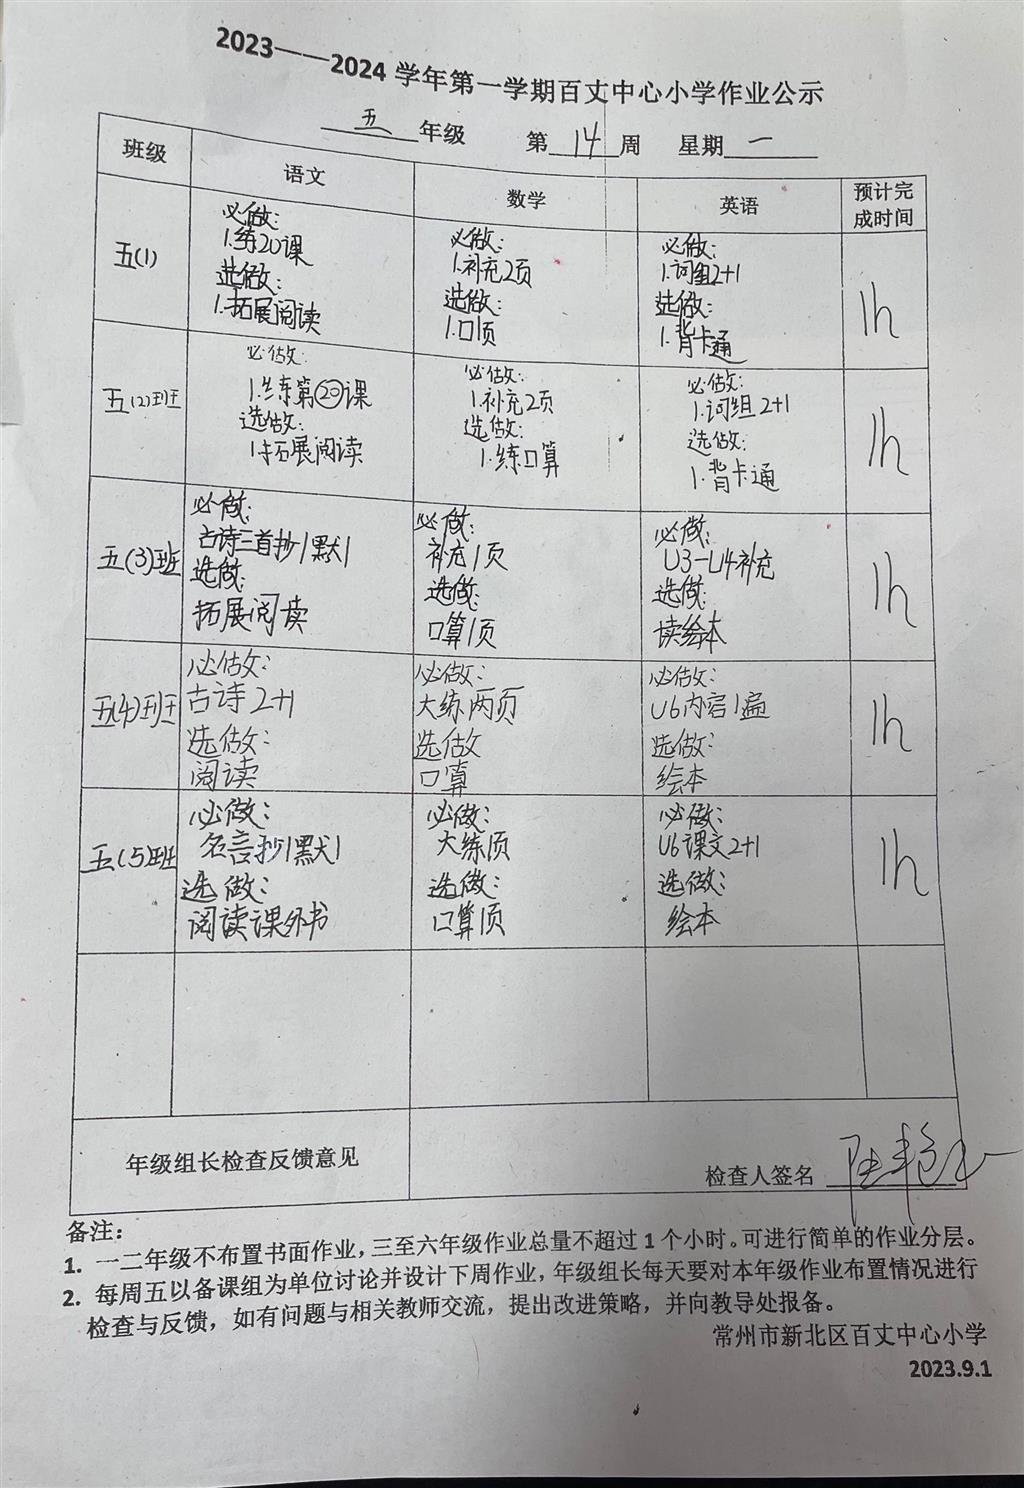 2023——2024 学年第一学期百丈中心小学作业公示
五 年级 第 14 周 星期 一
班级 语文 数学 英语 预计完成时间
五(1)
必做:
1.练20课
选做:
1.拓展阅读
必做:
1.补充2页
选做:
1.口1页
必做:
1.词组2+1
选做:
1.背卡通
1h
五(2)班
必做:
1.练第⑳课
选做:
1.拓展阅读
必做:
1.补充2页
选做:
1.练口算
必做:
1.词组2+1
选做:
1.背卡通
1h
五(3)班
必做:
古诗三首抄1默1
选做:
拓展阅读
必做:
补充1页
选做:
口算1页
必做:
U3-U4补充
选做:
读绘本
1h
五(4)班
必做:
古诗2+1
选做:
阅读
必做:
大练两页
选做
口算
必做:
U6内容1遍
选做:
绘本
1h
五(5)班
必做:
名言抄1默1
选做:
阅读课外书
必做:
大练1页
选做:
口算1页
必做:
U6课文2+1
选做:
绘本
1h
年级组长检查反馈意见
检查人签名
备注:
1. 一二年级不布置书面作业,三至六年级作业总量不超过1个小时。可进行简单的作业分层。
2. 每周五以备课组为单位讨论并设计下周作业,年级组长每天要对本年级作业布置情况进行
检查与反馈,如有问题与相关教师交流,提出改进策略,并向教导处报备。
常州市新北区百丈中心小学
2023.9.1